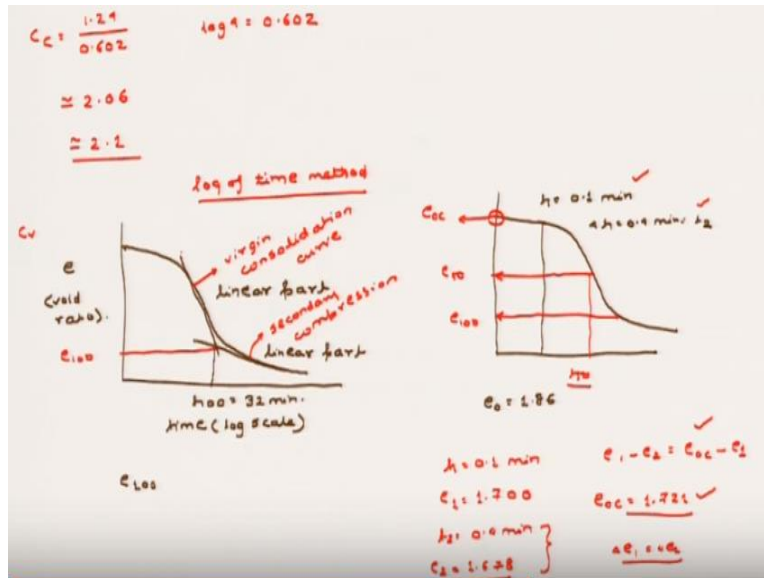 Cc = 1.24 / 0.602
log 4 = 0.602
≃ 2.06
≃ 2.1
log of time method
Cv
e
(void ratio).
virgin consolidation curve
linear part
secondary compression
linear part
e100
t100 = 32 min.
time (log scale)
e100
t1 = 0.1 min ✓
4t1 = 0.4 min, t2 ✓
eoc
e50
e100
t50
e0 = 1.86
t1 = 0.1 min
e1 = 1.700
t2 = 0.4 min
e2 = 1.678
e1 - e2 = eoc - e1 ✓
eoc = 1.721 ✓